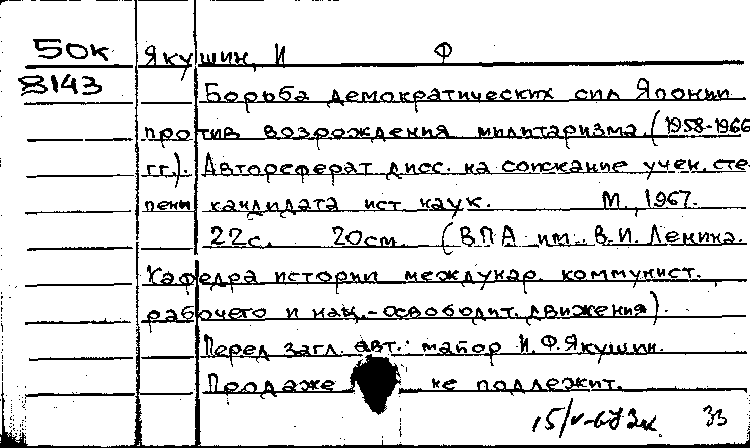 50к Якушин, И Ф
8143 Борьба демократических сил Японии
против возрождения милитаризма (1958-1966
гг.). Автореферат дисс. на соискание учен. сте-
пени кандидата ист. наук. М., 1967.
22с. 20см. (ВПА им. В.И. Ленина.
Кафедра истории междунар. коммунист.
рабочего и нац.-освободит. движения).
Перед загл. авт.: майор И.Ф.Якушин.
Продаже не подлежит.
15/V-67 33